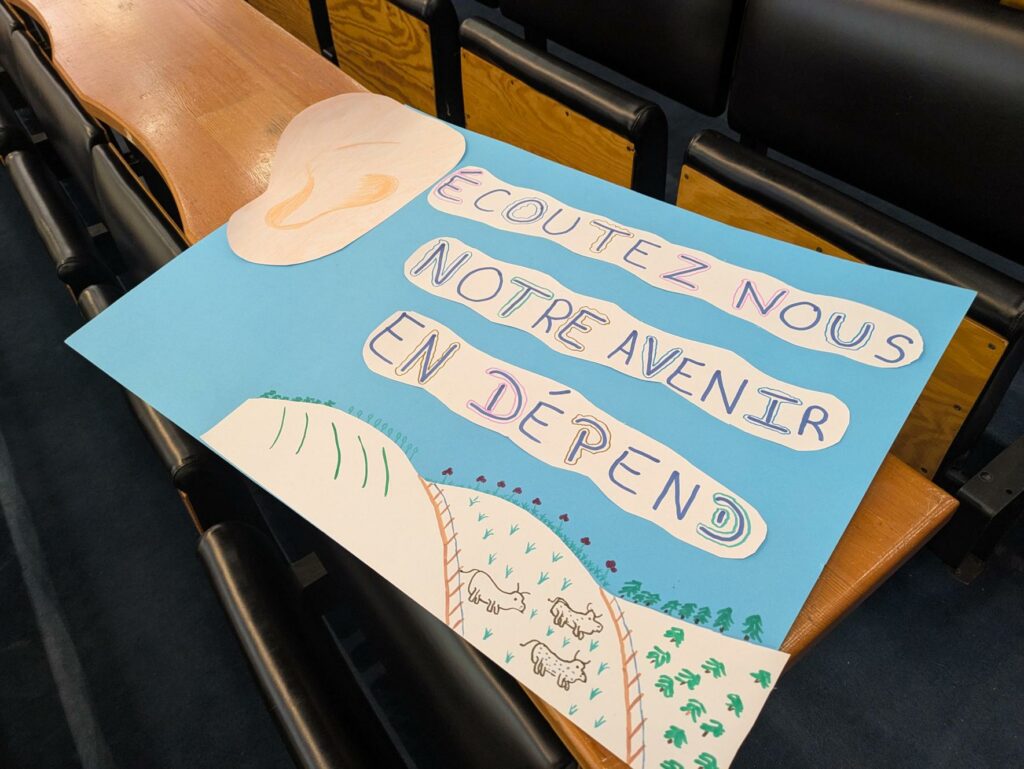 ÉCOUTEZ NOUS
NOTRE AVENIR
EN DÉPEND